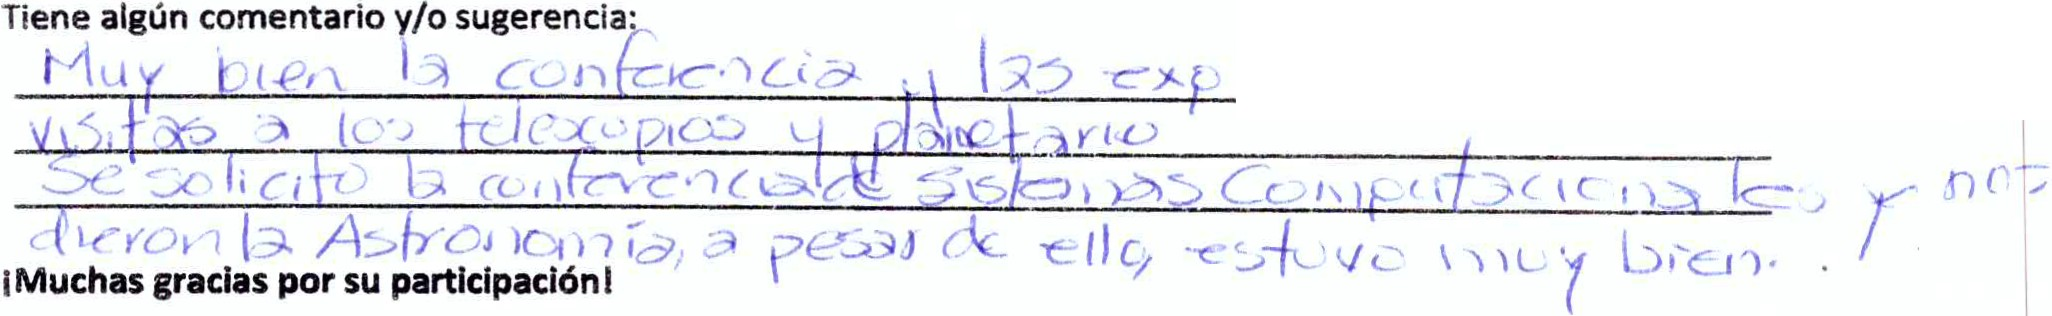 Tiene algún comentario y/o sugerencia:
Muy bien la conferencia y las exp
visitas a los telescopios y planetario
Se solicito la conferencia de sistemas Computacionales y nos
dieron la Astronomía, a pesar de ello, estuvo muy bien.
¡Muchas gracias por su participación!